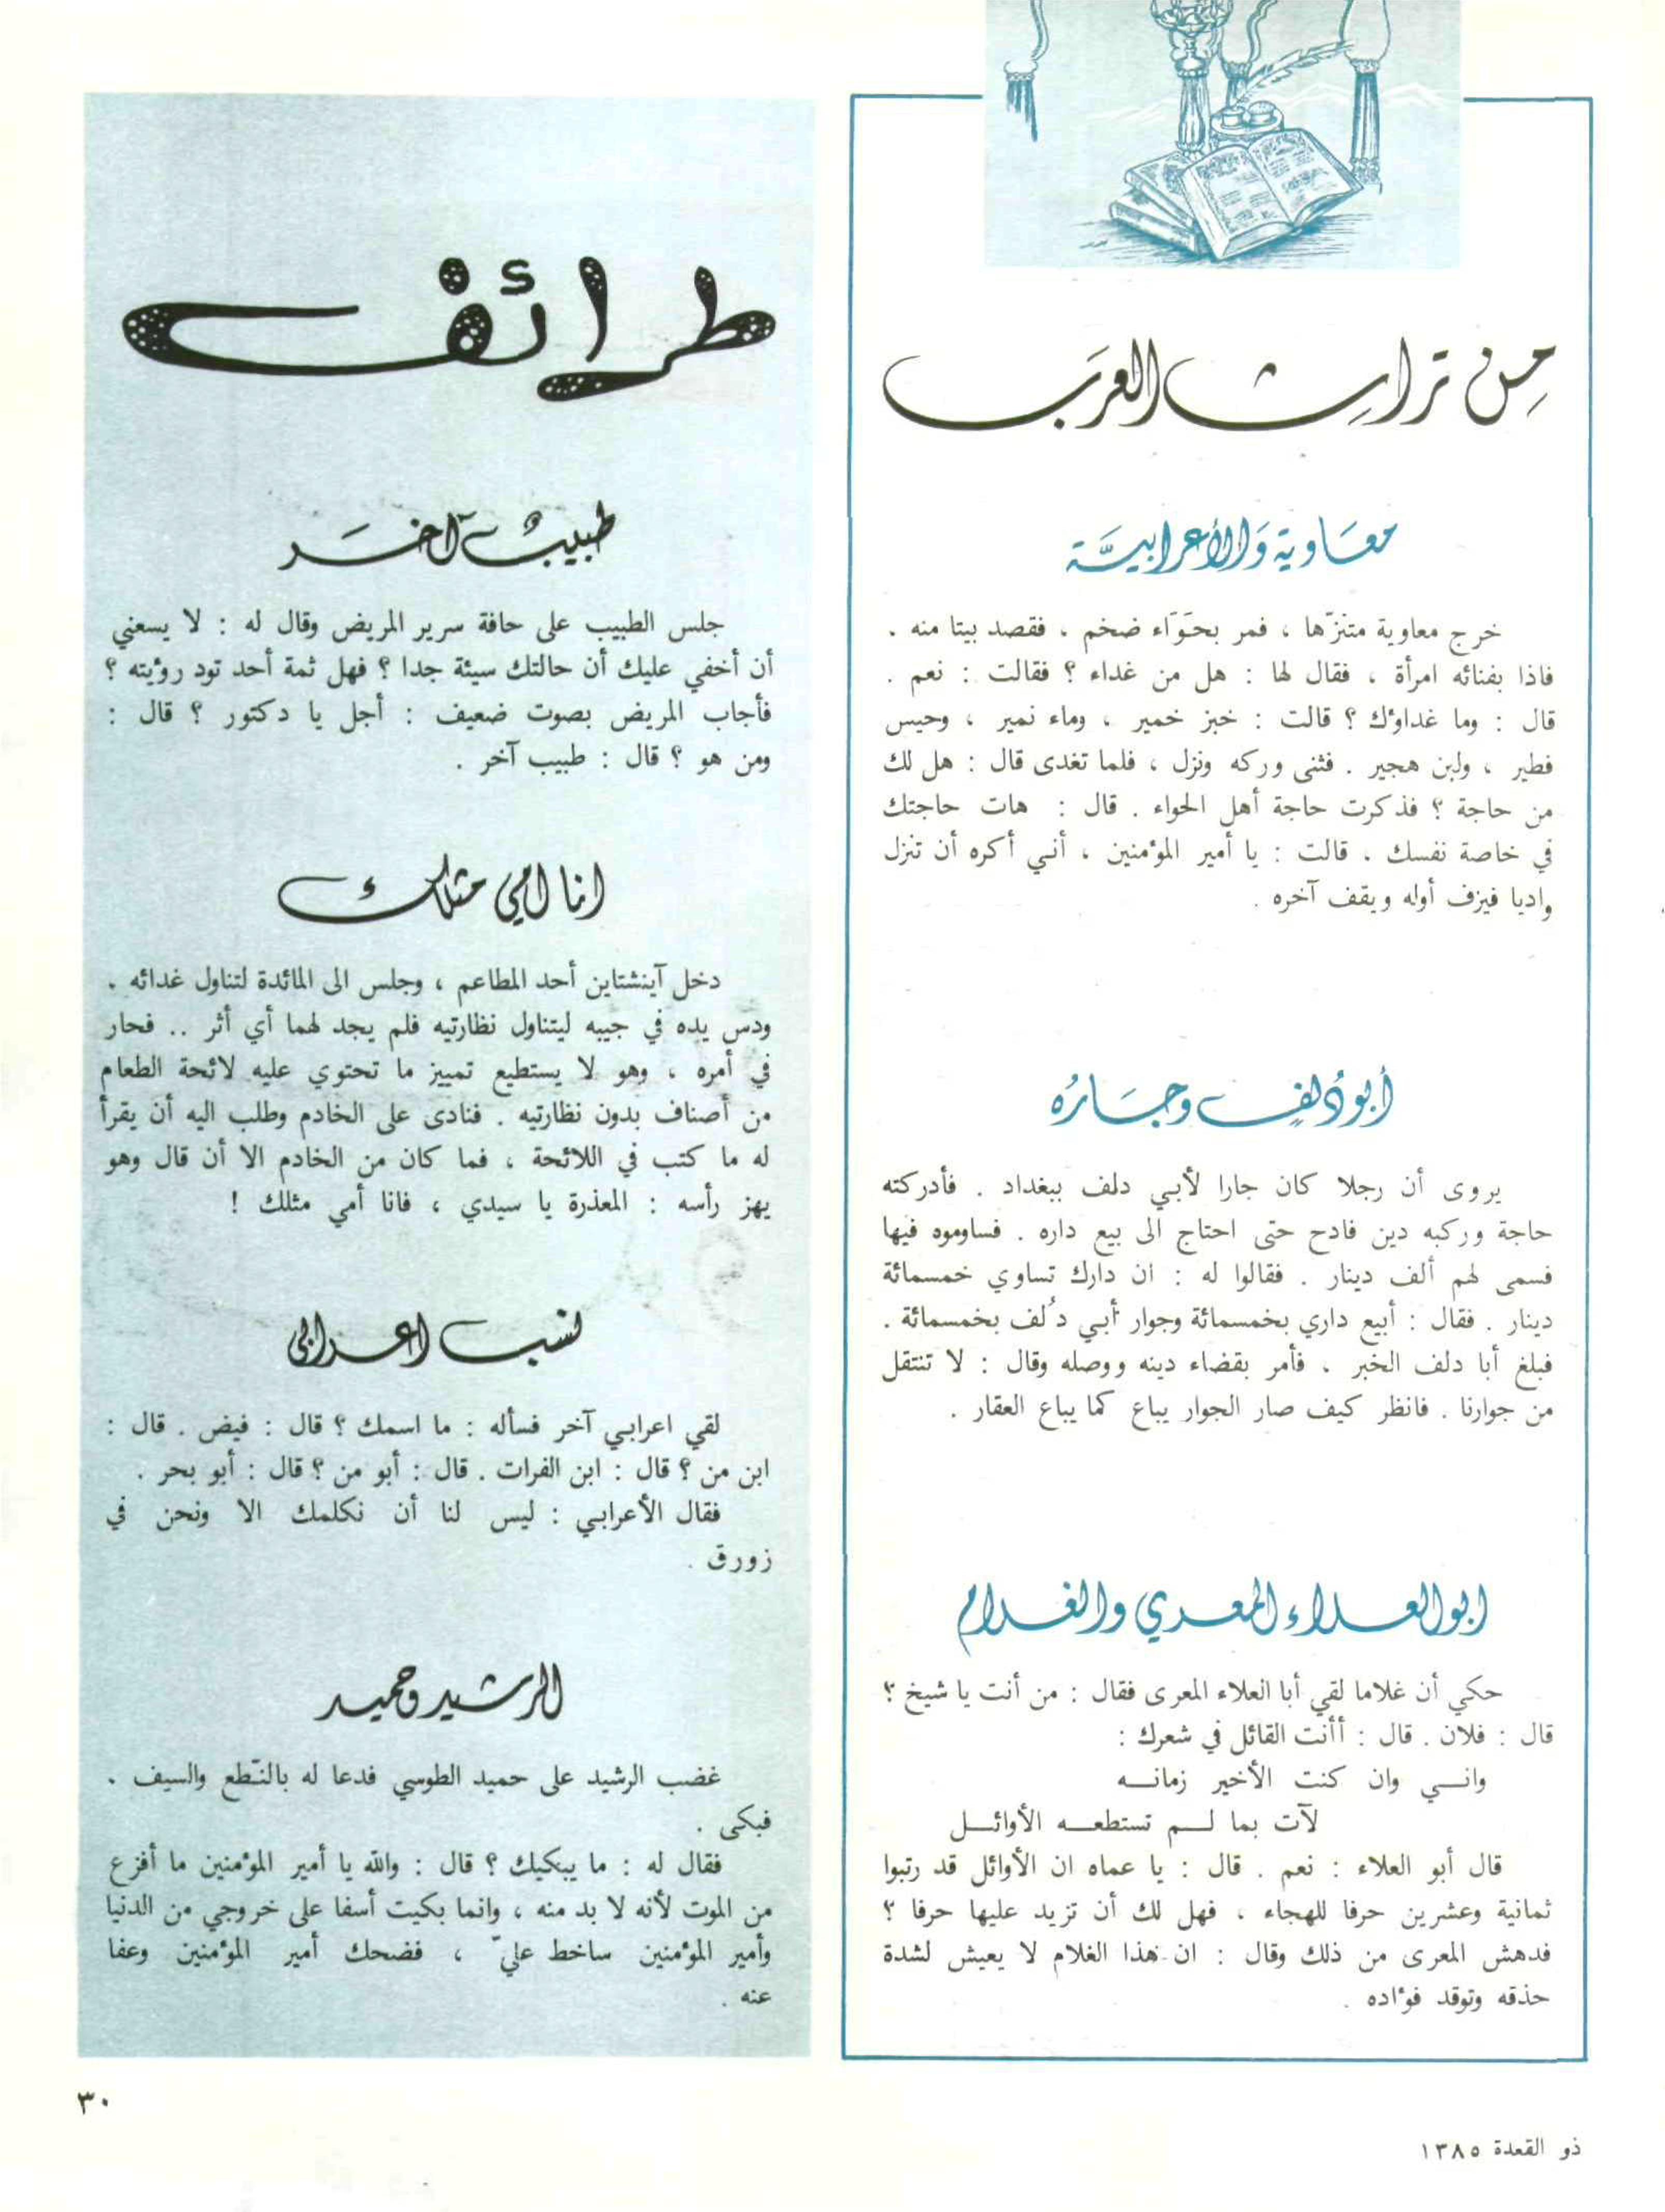 من تراث العرب
معاوية والأعرابية
خرج معاوية متنزّها ، فمر بحوّاء ضخم ، فقصد بيتا منه .
فاذا بفنائه امرأة ، فقال لها : هل من غداء ؟ فقالت : نعم .
قال : وما غداؤك ؟ قالت : خبز خمير ، وماء نمير ، وحيس
فطير ، ولبن هجير . فثنى وركه ونزل ، فلما تغدى قال : هل لك
من حاجة ؟ فذكرت حاجة أهل الحواء . قال : هات حاجتك
في خاصة نفسك . قالت : يا أمير المؤمنين ، أني أكره أن تنزل
واديا فيزف أوله ويقف آخره .
أبو دلف وجاره
يروى أن رجلا كان جارا لأبي دلف ببغداد . فأدركته
حاجة وركبه دين فادح حتى احتاج الى بيع داره . فساوموه فيها
فسمى لهم ألف دينار . فقالوا له : ان دارك تساوي خمسمائة
دينار . فقال : أبيع داري بخمسمائة وجوار أبي دُلف بخمسمائة .
فبلغ أبا دلف الخبر ، فأمر بقضاء دينه ووصله وقال : لا تنتقل
من جوارنا . فانظر كيف صار الجوار يباع كما يباع العقار .
ابو العلاء المعري والغلام
حكي أن غلاما لقي أبا العلاء المعرى فقال : من أنت يا شيخ ؟
قال : فلان . قال : أأنت القائل في شعرك :
وانـــي وان كنت الأخير زمانـــه
لآت بما لـــم تستطعـــه الأوائـــل
قال أبو العلاء : نعم . قال : يا عماه ان الأوائل قد رتبوا
ثمانية وعشرين حرفا للهجاء ، فهل لك أن تزيد عليها حرفا ؟
فدهش المعرى من ذلك وقال : ان هذا الغلام لا يعيش لشدة
حذقه وتوقد فؤاده .
طرائف
طبيب آخر
جلس الطبيب على حافة سرير المريض وقال له : لا يسعني
أن أخفي عليك أن حالتك سيئة جدا ؟ فهل ثمة أحد تود رؤيته ؟
فأجاب المريض بصوت ضعيف : أجل يا دكتور ؟ قال :
ومن هو ؟ قال : طبيب آخر .
انا امي مثلك
دخل آينشتاين أحد المطاعم ، وجلس الى المائدة لتناول غدائه .
ودس يده في جيبه ليتناول نظارتيه فلم يجد لهما أي أثر .. فحار
في أمره ، وهو لا يستطيع تمييز ما تحتوي عليه لائحة الطعام
من أصناف بدون نظارتيه . فنادى على الخادم وطلب اليه أن يقرأ
له ما كتب في اللائحة ، فما كان من الخادم الا أن قال وهو
يهز رأسه : المعذرة يا سيدي ، فانا أمي مثلك !
نسب اعرابي
لقي اعرابي آخر فسأله : ما اسمك ؟ قال : فيض . قال :
ابن من ؟ قال : ابن الفرات . قال : أبو من ؟ قال : أبو بحر .
فقال الأعرابي : ليس لنا أن نكلمك الا ونحن في
زورق .
الرشيد وحميد
غضب الرشيد على حميد الطوسي فدعا له بالنّطع والسيف .
فبكى .
فقال له : ما يبكيك ؟ قال : والله يا أمير المؤمنين ما أفزع
من الموت لأنه لا بد منه ، وانما بكيت أسفا على خروجي من الدنيا
وأمير المؤمنين ساخط عليّ ، فضحك أمير المؤمنين وعفا
عنه .
٣٠
ذو القعدة ١٣٨٥